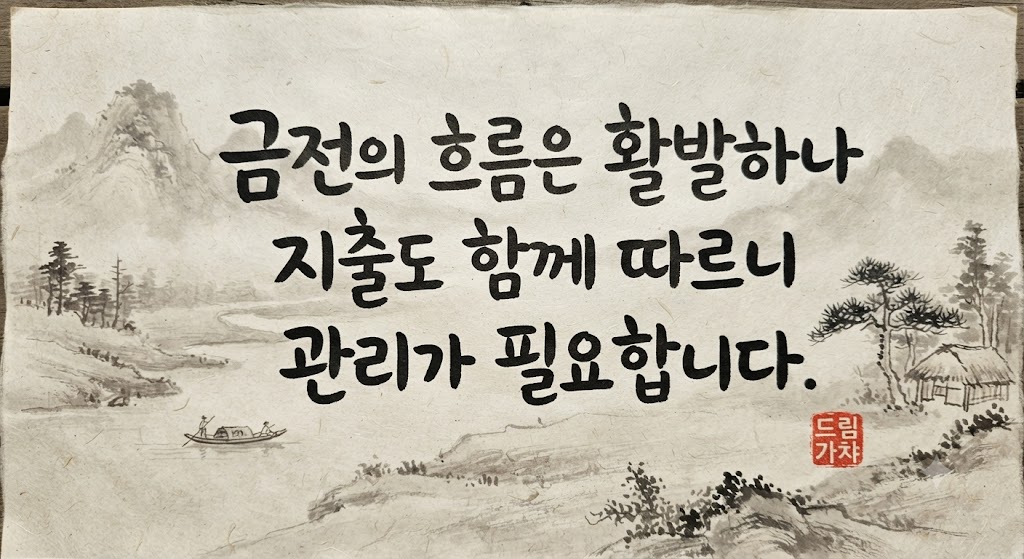 금전의 흐름은 활발하나
지출도 함께 따르니
관리가 필요합니다.
드림
가챠